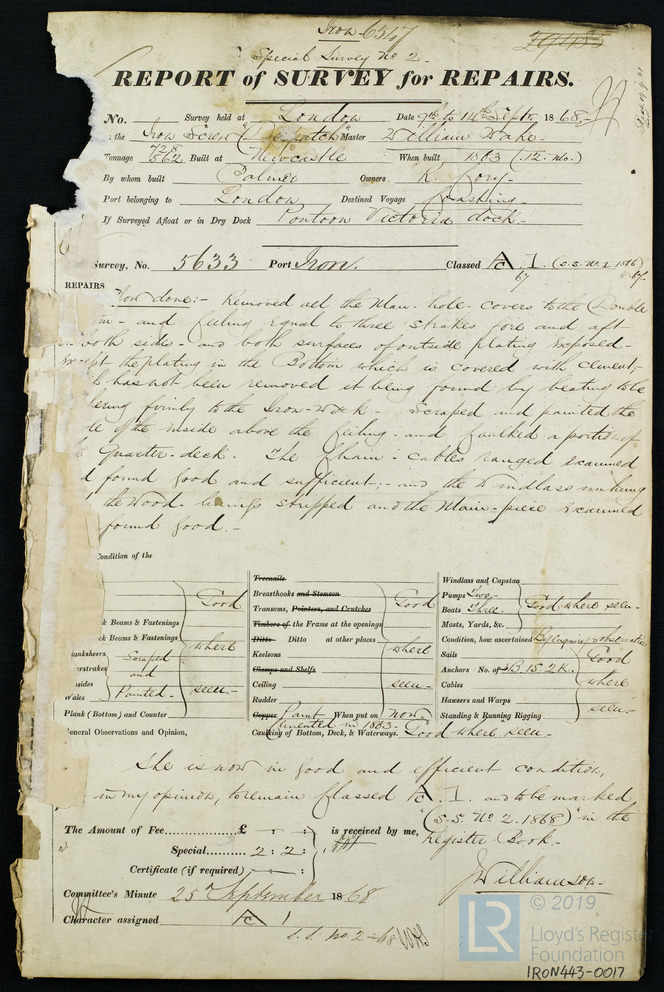 Iron 6517
29485
Special Survey No 2.
REPORT of SURVEY for REPAIRS.
No. Survey held at London Date 9th to 14th Septr 1868.
the Iron Screw "Despatch" Master William Wake
Tonnage 728 562 Built at Newcastle When built 1863 (12 mo.)
By whom built Palmer Owners K. Cory
Port belonging to London Destined Voyage Coasting
If Surveyed Afloat or in Dry Dock Pontoon Victoria dock
Survey, No. 5633 Port Iron. Classed A 1. (S.S. No. 1. 1866)
67
REPAIRS
Now done:- Removed all the Man-hole-covers to the Double
and Ceiling equal to three strakes fore and aft
both sides - and both surfaces of outside plating exposed -
except the plating in the Bottom which is covered with cement,
has not been removed it being found by beating to be
firmly to the Iron-work - Scraped and painted the
of the inside above the Ceiling - and Caulked a portion of
Quarter-deck. The Chain-cables ranged examined
found good and sufficient; - and the Windlass unhung
the Wood-linings stripped and the Main-piece examined
found good. -
Condition of the
Beams & Fastenings
Beams & Fastenings
Good
where
seen
Scraped
and
Painted
Wales
Plank (Bottom) and Counter
Treenails
Breasthooks and Stemson
Transoms, Pointers, and Crutches
Timbers of the Frame at the openings
Ditto Ditto at other places
Keelsons
Clamps and Shelfs
Ceiling
Rudder
Good
where
seen
Copper Paint When put on now
Cemented in 1863
Caulking of Bottom, Deck, & Waterways. Good where seen
Windlass and Capstan
Pumps Two
Boats Three
Masts, Yards, &c.
Good where seen
Condition, how ascertained By enquiry & observation
Sails
Anchors No. of 3B 1S 2K.
Cables
Hawsers and Warps
Standing & Running Rigging
Good
where
seen
General Observations and Opinion,
She is now in good and efficient condition,
in my opinion, to remain Classed A 1. and to be marked
"(S.S. No 2. 1868)" in the
Register Book.
The Amount of Fee............£
Special......... 2 : 2 :
Certificate (if required)
is received by me,
J Williamson
Committee's Minute 25th September 1868
Character assigned A 1
S.S. No 2 - 68
© 2019
LR
Lloyd's Register
Foundation
IRON443-0017